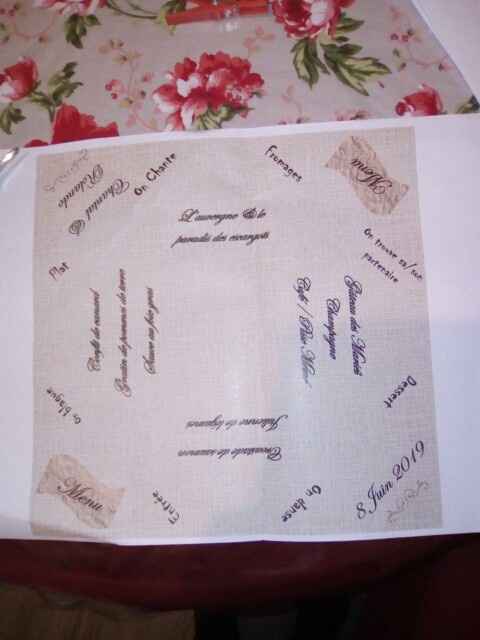 Menu
Fromages
On Chante
L'auvergne & le
paradis des escargots
Chantal &
Rolando
Plat
Confit de canard
Gratin de pommes de terre
Sauce au foie gras
On blague
Menu
Entrée
Croustade de saumon
Julienne de légumes
On danse
8 Juin 2019
Dessert
Gâteau des Mariés
Champagne
Café /
On trouve sa/son
partenaire